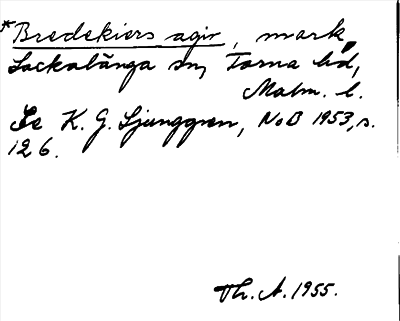 *Bredekiers agir, mark,
Lackalänga sn, Torna hd,
Malm. l.
Se K. G. Ljunggren, NoB 1953, s.
126.
Th. A. 1955.